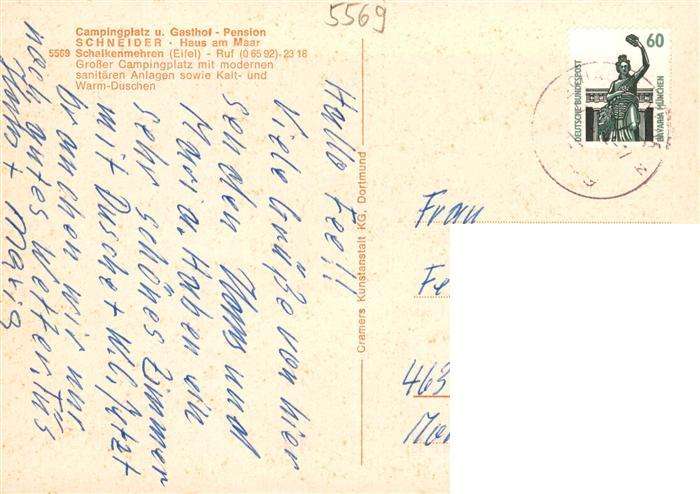 5569
Campingplatz u. Gasthof - Pension
SCHNEIDER · Haus am Maar
5569 Schalkenmehren (Eifel) - Ruf (0 65 92) - 23 16
Großer Campingplatz mit modernen
sanitären Anlagen sowie Kalt- und
Warm-Duschen
Hallo Fee!!
Viele Grüße von hier
senden Hans und
Maria. Haben ein
sehr schönes Zimmer
mit Dusche + W.C. Jetzt
brauchen wir nur
noch gutes Wetter. Tüs
Hans + Maria
Cramers Kunstanstalt KG, Dortmund
60
DEUTSCHE BUNDESPOST
BAVARIA MÜNCHEN
Frau
Fe
463